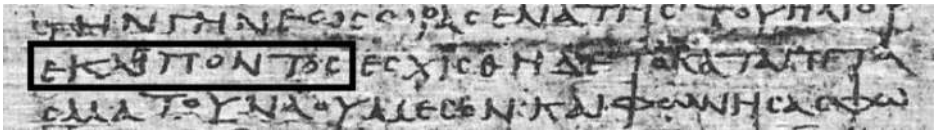 ΤΗΝΓΗΝΕΩϹΩΡΑϹΕΝΑΤΗϹΤΟΥΗΛΙΟΥ
ΕΚΛΙΠΟΝΤΟϹΕϹΧΙϹΘΗΔΕΤΟΚΑΤΑΠΕΤΑ
ϹΜΑΤΟΥΝΑΟΥΜΕϹΟΝ·ΚΑΙΦΩΝΗϹΑϹΦΩ